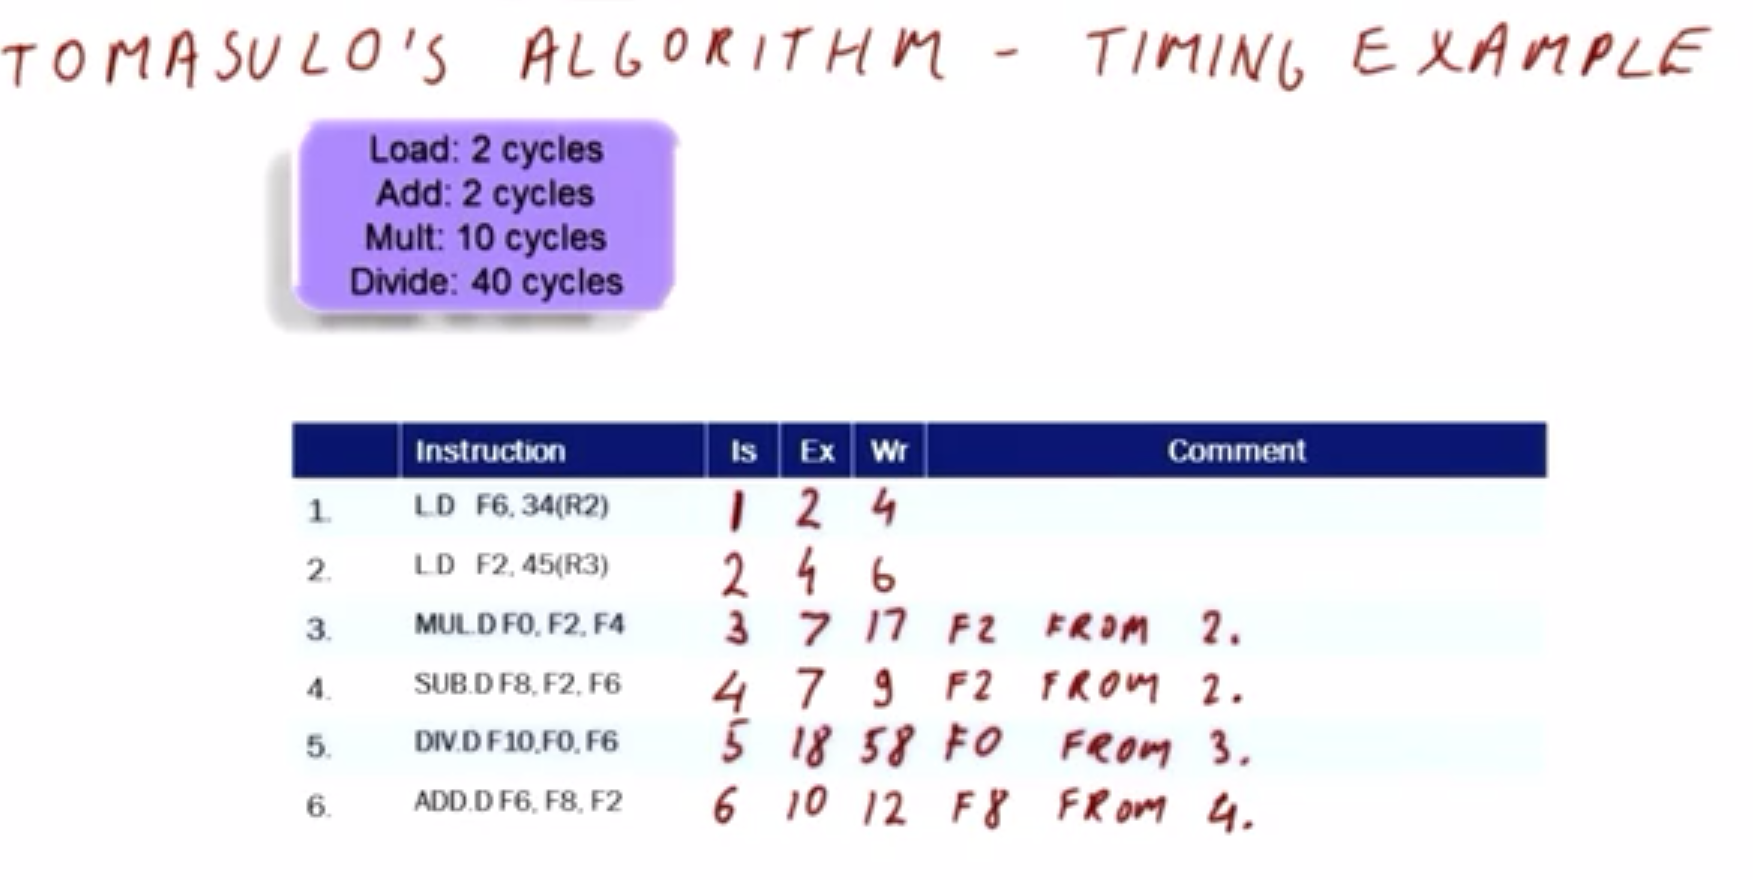 TOMASULO'S ALGORITHM - TIMING EXAMPLE
Load: 2 cycles
Add: 2 cycles
Mult: 10 cycles
Divide: 40 cycles
Instruction Is Ex Wr Comment
1. L.D F6, 34(R2) 1 2 4
2. L.D F2, 45(R3) 2 4 6
3. MUL.D F0, F2, F4 3 7 17 F2 FROM 2.
4. SUB.D F8, F2, F6 4 7 9 F2 FROM 2.
5. DIV.D F10,F0, F6 5 18 58 F0 FROM 3.
6. ADD.D F6, F8, F2 6 10 12 F8 FROM 4.